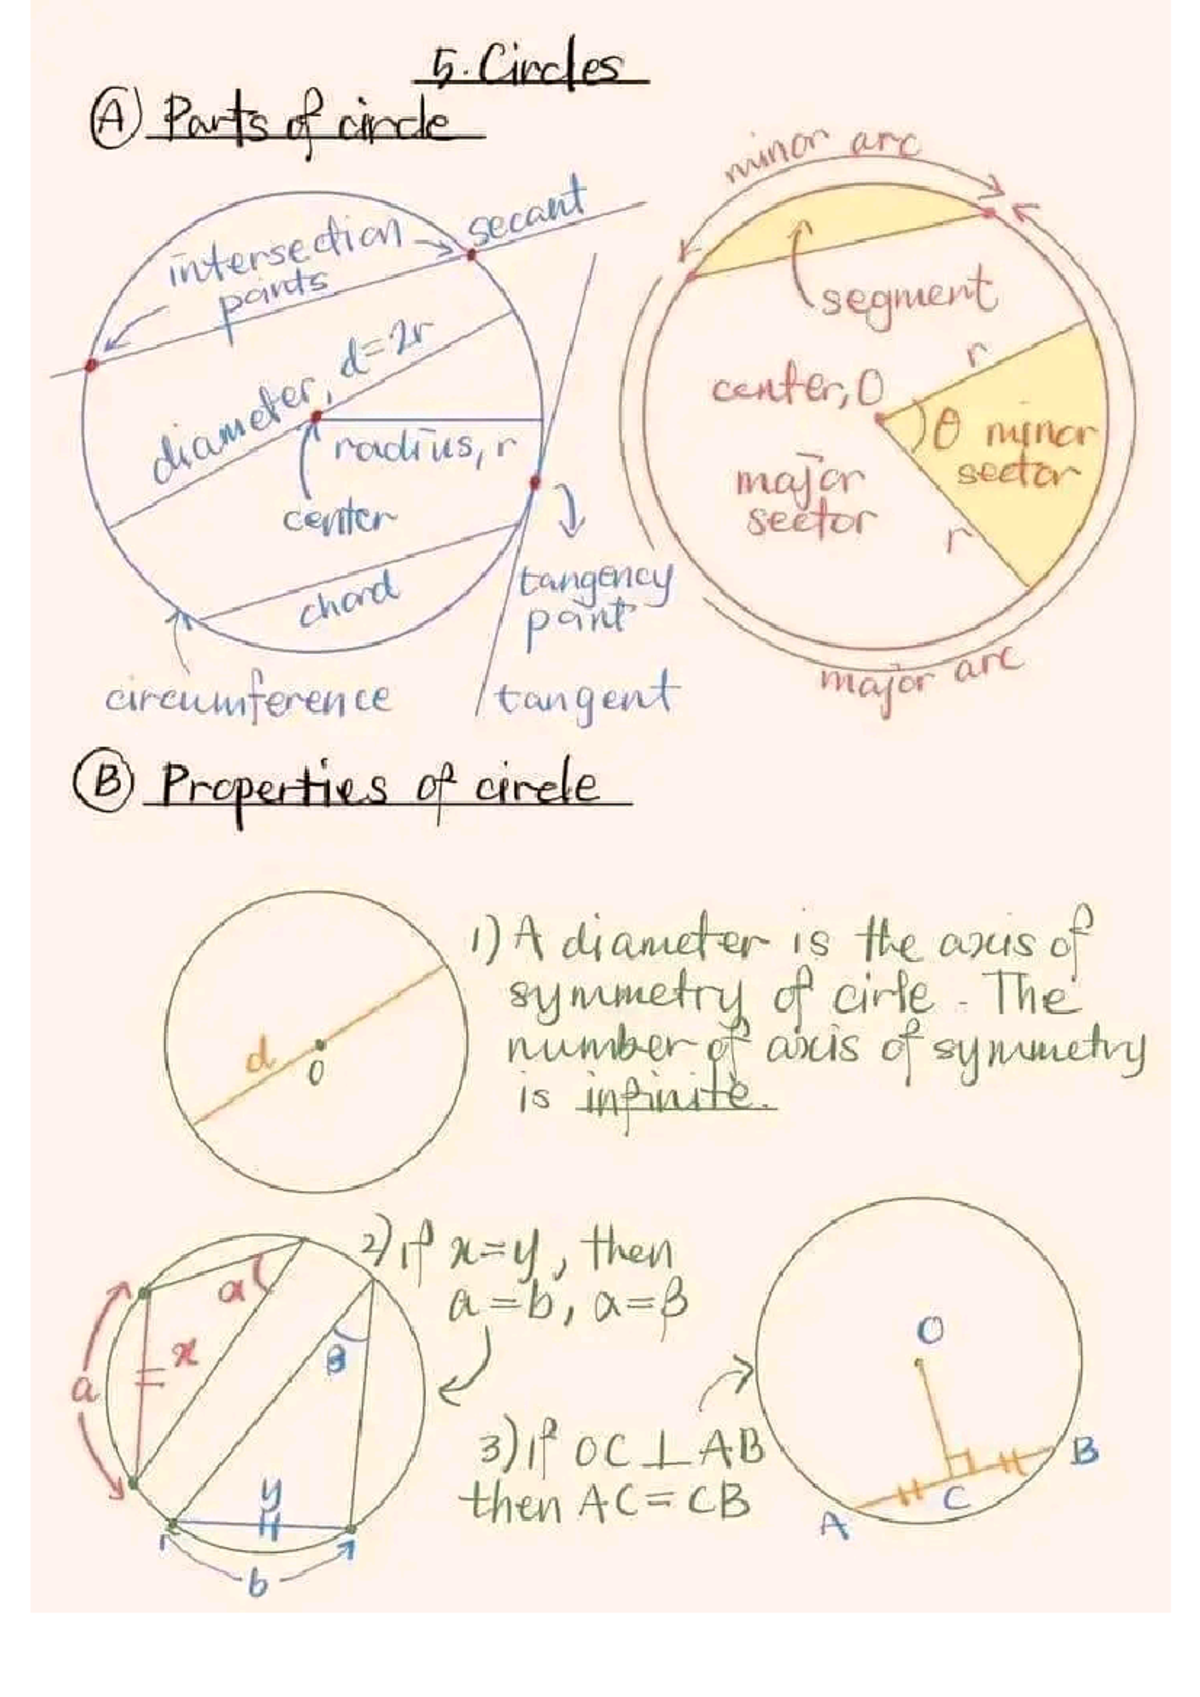 5. Circles
(A) Parts of circle
minor arc
secant
intersection
points
segment
diameter, d=2r
r
center, O
radius, r
θ minor
sector
major
sector
center
r
chord
tangency
point
major arc
circumference
tangent
(B) Properties of circle
1) A diameter is the axis of
symmetry of cirle. The
number of axis of symmetry
is infinite.
d
O
2) if x=y, then
a=b, α=β
α
x
a
β
O
3) if OC⊥AB
then AC=CB
B
y
C
A
b